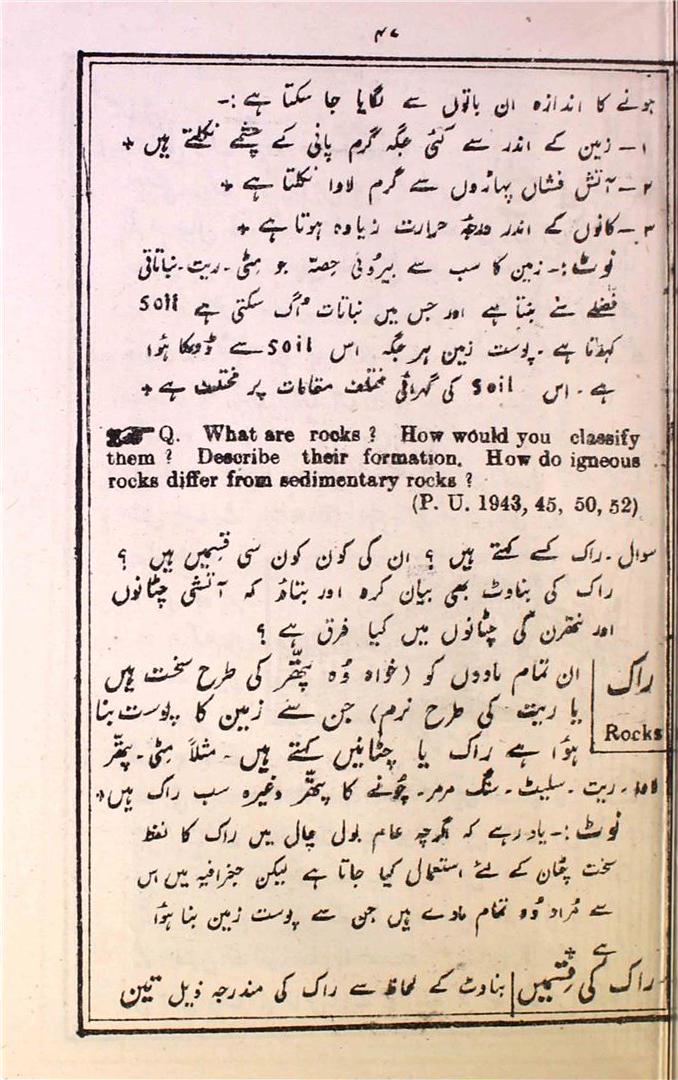 ۴۷
ہونے کا اندازہ ان باتوں سے لگایا جا سکتا ہے :-
۱- زمین کے اندر سے کئی جگہ گرم پانی کے چشمے نکلتے ہیں +
۲- آتش فشاں پہاڑوں سے گرم لاوا نکلتا ہے +
۳- کانوں کے اندر درجۂ حرارت زیادہ ہوتا ہے +
نوٹ :- زمین کا سب سے بیرونی حصہ جو مٹی - ریت - نباتاتی
فضلے سے بنتا ہے اور جس میں نباتات اُگ سکتی ہے Soil
کہلاتا ہے - پوست زمین ہر جگہ اس Soil سے ڈھکا ہؤا
ہے - اس Soil کی گہرائی مختلف مقامات پر مختلف ہے +
Q. What are rocks ? How would you classify
them ? Describe their formation. How do igneous
rocks differ from sedimentary rocks ?
(P. U. 1943, 45, 50, 52)
سوال - راک کسے کہتے ہیں ؟ ان کی کون کون سی قسمیں ہیں ؟
راک کی بناوٹ بھی بیان کرو اور بتاؤ کہ آتشی چٹانوں
اور نتھرن کی چٹانوں میں کیا فرق ہے ؟
راک
Rocks
ان تمام مادوں کو (خواہ وُہ پتھّر کی طرح سخت ہیں
یا ریت کی طرح نرم) جن سے زمین کا پوست بنا
ہؤا ہے راک یا چٹانیں کہتے ہیں - مثلاً مٹی - پتھّر
لاوا - ریت - سلیٹ - سنگ مرمر - چُونے کا پتھّر وغیرہ سب راک ہیں +
نوٹ :- یاد رہے کہ اگرچہ عام بول چال میں راک کا لفظ
سخت چٹان کے لئے استعمال کیا جاتا ہے لیکن جغرافیہ میں اس
سے مُراد وُہ تمام مادے ہیں جن سے پوست زمین بنا ہؤا
ہے +
راک کی قِسمیں
بناوٹ کے لحاظ سے راک کی مندرجہ ذیل تین